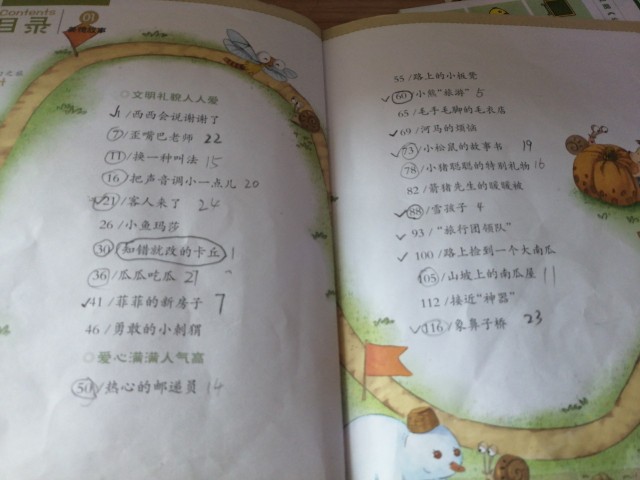 Contents
目录
01
文明礼貌人人爱
/西西会说谢谢了
7/歪嘴巴老师 22
11/换一种叫法 15
16/把声音调小一点儿 20
✓21/客人来了 24
26/小鱼玛莎
30/知错就改的卡丘 1
36/瓜瓜吃瓜 21
✓41/菲菲的新房子 7
46/勇敢的小刺猬
爱心满满人气高
50/热心的邮递员 14
55/路上的小板凳
✓60/小熊"旅游" 5
65/毛手毛脚的毛衣店
✓69/河马的烦恼
✓73/小松鼠的故事书 19
78/小猪聪聪的特别礼物 16
82/箭猪先生的暖暖被
✓88/雪孩子 4
✓93/"旅行团领队"
✓100/路上捡到一个大南瓜
105/山坡上的南瓜屋 11
112/接近"神器"
✓116/象鼻子桥 23